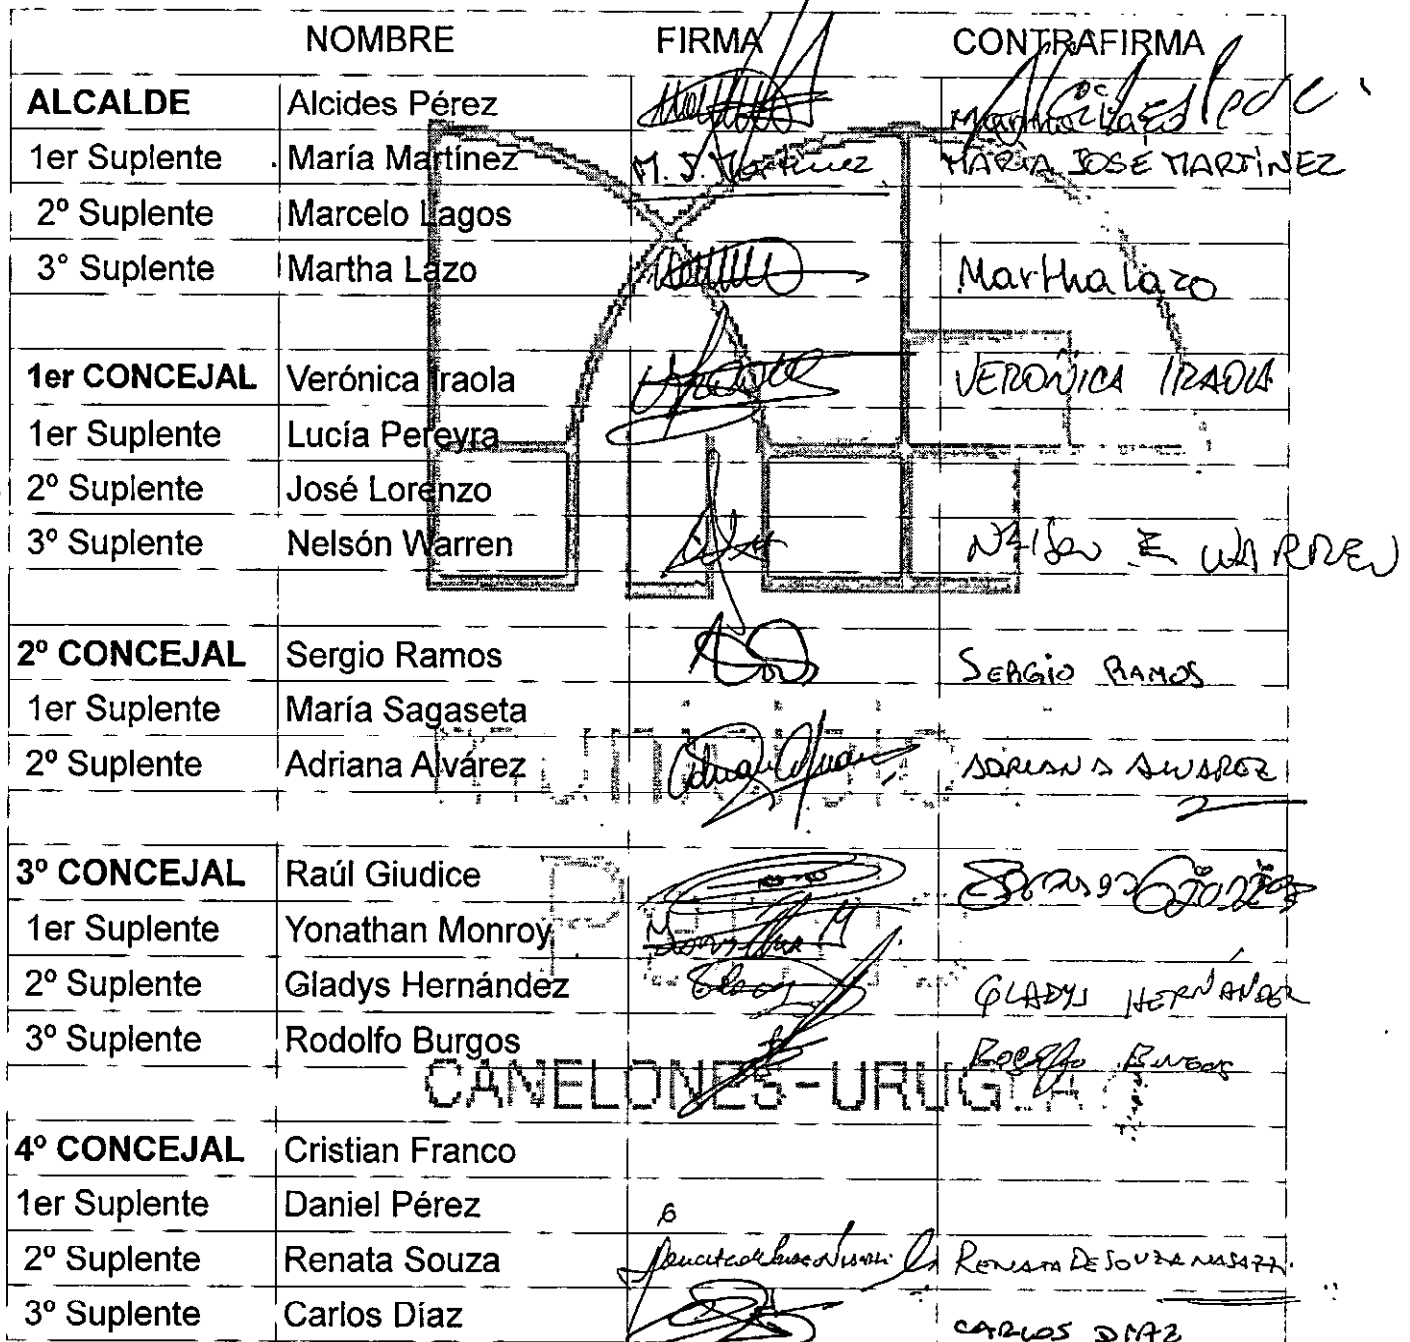 NOMBRE FIRMA CONTRAFIRMA
ALCALDE Alcides Pérez
1er Suplente María Martínez M. J. Martínez MARIA JOSÉ MARTÍNEZ
2º Suplente Marcelo Lagos
3° Suplente Martha Lazo Martha Lazo
1er CONCEJAL Verónica Iraola VERÓNICA IRAOLA
1er Suplente Lucía Pereyra
2º Suplente José Lorenzo
3º Suplente Nelsón Warren NELSON E WARREN
2º CONCEJAL Sergio Ramos SERGIO RAMOS
1er Suplente María Sagaseta
2º Suplente Adriana Alvárez ADRIANA ALVAREZ
3º CONCEJAL Raúl Giudice
1er Suplente Yonathan Monroy
2º Suplente Gladys Hernández GLADYS HERNÁNDEZ
3º Suplente Rodolfo Burgos Rodolfo Burgos
CANELONES-URUGUAY
4º CONCEJAL Cristian Franco
1er Suplente Daniel Pérez
2º Suplente Renata Souza RENATA DE SOUZA NASAZZI
3º Suplente Carlos Díaz CARLOS DIAZ